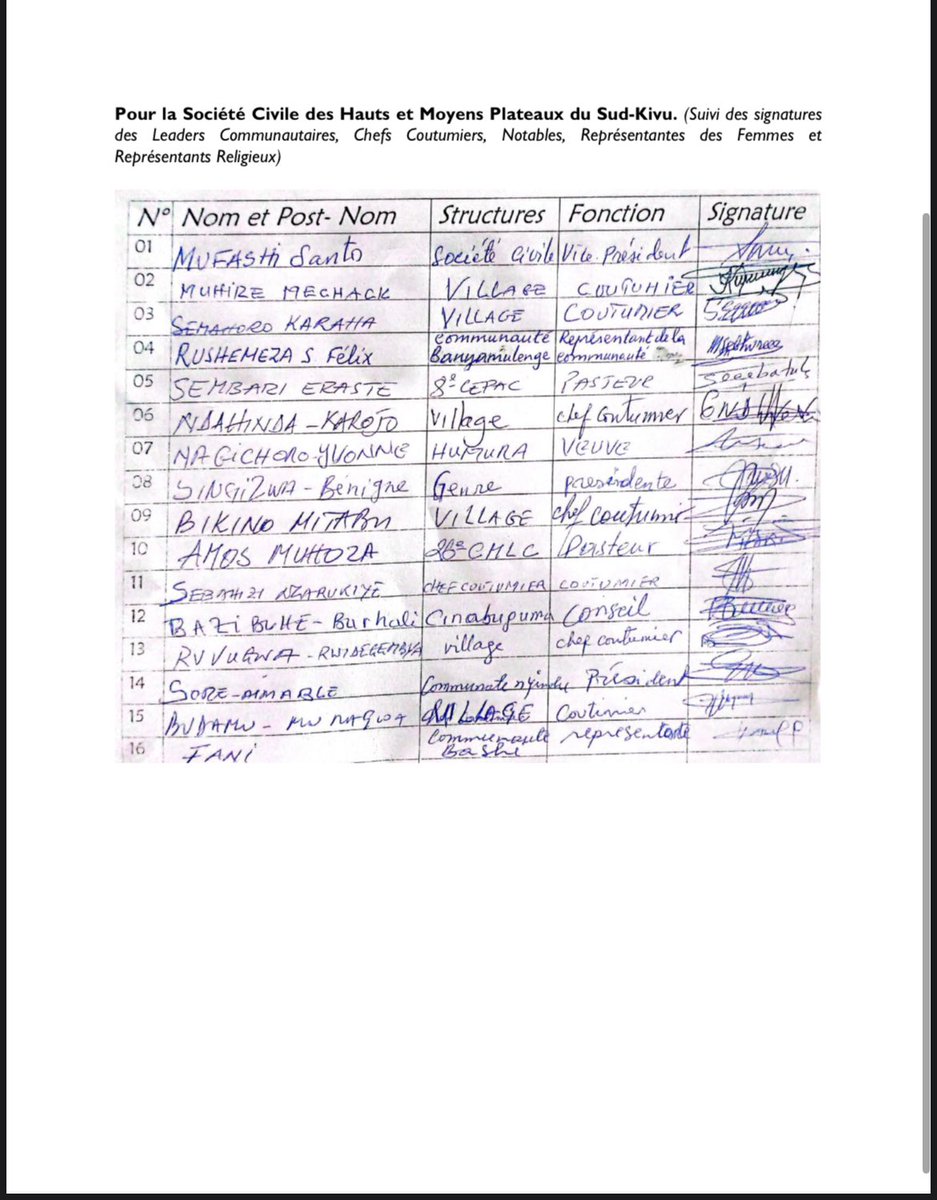 Pour la Société Civile des Hauts et Moyens Plateaux du Sud-Kivu. (Suivi des signatures
des Leaders Communautaires, Chefs Coutumiers, Notables, Représentantes des Femmes et
Représentants Religieux)
N° Nom et Post- Nom Structures Fonction Signature
01 MUFASHI Santo Société Civile Vice Président
02 MUHIRE MECHACK VILLAGE COUTUMIER
03 SEMAHORO KARAHA VILLAGE COUTUMIER
04 RUSHEMEZA S Félix communauté Banyamulenge Représentant de la communauté
05 SEMBARI ERASTE 8e CEPAC PASTEUR
06 NDAHINDA - KAROJO Village chef coutumier
07 NAGICHORO YVONNE HUMURA VEUVE
08 SINGIZWA - Bénigne Genre présidente
09 BIKINO MITABU VILLAGE chef coutumi
10 AMOS MUHOZA 26e CMLC Pasteur
11 SEBAHIZI NZARUKIYE CHEF COUTUMIER COUTUMIER
12 BAZIBUHE - Burhali Conseil
13 RUVUGWA - village chef coutumier
14 SORE-AIMABLE Président
15 Coutumier
16 FANI communauté Bashi représentante